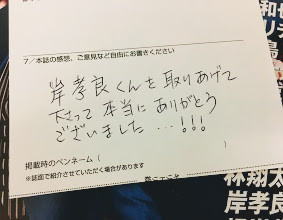 7/本誌の感想、ご意見など自由にお書きください
岸孝良くんを取りあげて
下さって本当にありがとう
ございました…!!!
掲載時のペンネーム(　　　)
※誌面で紹介させていただく場合があります
林翔太
岸孝良